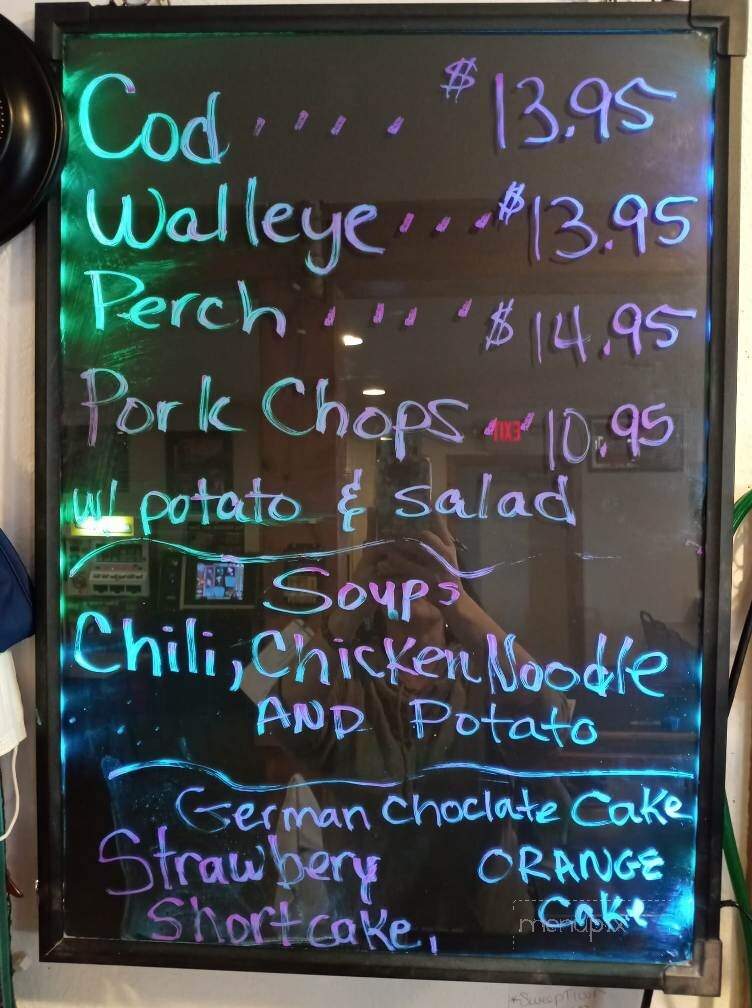 Cod .... $ 13.95
Walleye ... $ 13.95
Perch .... $ 14.95
Pork Chops ... 10.95
w/ potato & salad
Soups
Chili, Chicken Noodle
AND Potato
German Choclate Cake
Strawbery ORANGE
Shortcake, Cake
menupix
EXIT